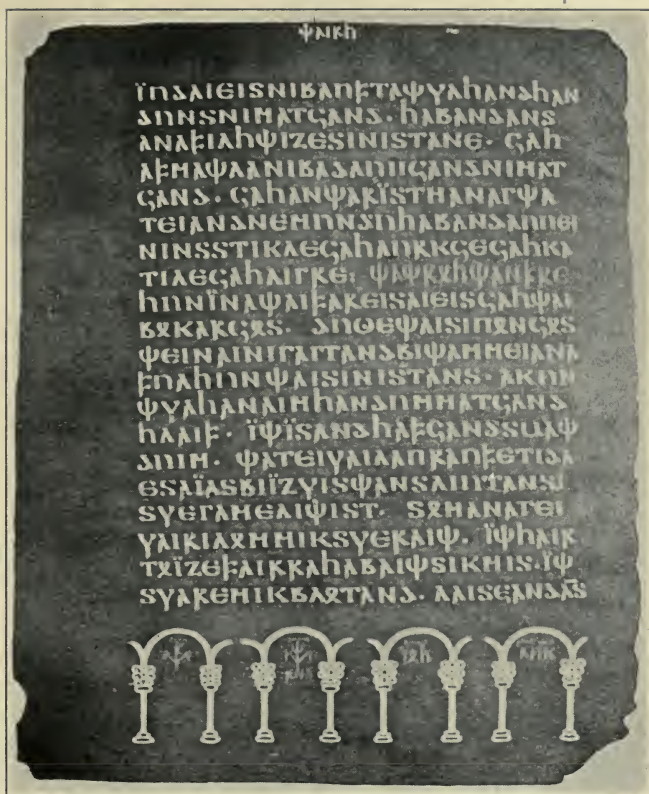 𐌸𐌰𐌹𐍂𐌷
𐌹̈𐌿𐌳𐌰𐌹𐌴𐌹𐍃𐌽𐌹𐌱𐌰𐌿𐍆𐍄𐌰𐌸𐍅𐌰𐌷𐌰𐌽𐌳𐌷𐌰𐌽
𐌳𐌿𐌽𐍃𐌽𐌹𐌼𐌰𐍄𐌾𐌰𐌽𐌳·𐌷𐌰𐌱𐌰𐌽𐌳𐌰𐌽𐍃
𐌰𐌽𐌰𐍆𐌹𐌻𐌷𐌸𐌹𐌶𐌴𐍃𐌹𐌽𐌹𐍃𐍄𐌰𐌽𐌴·𐌾𐌰𐌷
𐌰𐍆𐌼𐌰𐌸𐌻𐌰𐌽𐌹𐌱𐌰𐌳𐌰𐌿𐍀𐌾𐌰𐌽𐌳𐌽𐌹𐌼𐌰𐍄
𐌾𐌰𐌽𐌳·𐌾𐌰𐌷𐌰𐌽𐌸𐌰𐍂𐌹̈𐍃𐍄𐌼𐌰𐌽𐌰𐌲𐌸𐌰
𐍄𐌴𐌹𐌰𐌽𐌳𐌽𐌴𐌼𐌿𐌽𐌳𐌿𐌷𐌰𐌱𐌰𐌽𐌳𐌰𐌿𐍀𐌴𐌹
𐌽𐌹𐌽𐍃𐍃𐍄𐌹𐌺𐌻𐌴𐌾𐌰𐌷𐌰𐌿𐍂𐌺𐌾𐌴𐌾𐌰𐌷𐌺𐌰
𐍄𐌹𐌻𐌴𐌾𐌰𐌷𐌻𐌹𐌲𐍂𐌴: 𐌸𐌰𐌸𐍂𐍉𐌷𐌸𐌰𐌽𐍆𐍂𐌴
𐌷𐌿𐌽𐌹̈𐌽𐌰𐌸𐌰𐌹𐍆𐌰𐍂𐌴𐌹𐍃𐌰𐌹𐌴𐌹𐍃𐌾𐌰𐌷𐌸𐌰𐌹
𐌱𐍉𐌺𐌰𐍂𐌾𐍉𐍃·𐌳𐌿𐍈𐌴𐌸𐌰𐌹𐍃𐌹𐍀𐍉𐌽𐌾𐍉𐍃
𐌸𐌴𐌹𐌽𐌰𐌹𐌽𐌹𐌲𐌰𐌲𐌲𐌰𐌽𐌳𐌱𐌹𐌸𐌰𐌼𐌼𐌴𐌹𐌰𐌽𐌰
𐍆𐌿𐌻𐌷𐌿𐌽𐌸𐌰𐌹𐍃𐌹𐌽𐌹𐍃𐍄𐌰𐌽𐍃·𐌰𐌺𐌿𐌽
𐌸𐍅𐌰𐌷𐌰𐌽𐌰𐌹𐌼𐌷𐌰𐌽𐌳𐌿𐌼𐌼𐌰𐍄𐌾𐌰𐌽𐌳
𐌷𐌻𐌰𐌹𐍆·𐌹̈𐌸𐌹̈𐍃𐌰𐌽𐌳𐌷𐌰𐍆𐌾𐌰𐌽𐌳𐍃𐌵𐌰𐌸
𐌳𐌿𐌹𐌼·𐌸𐌰𐍄𐌴𐌹𐍅𐌰𐌹𐌻𐌰𐍀𐍂𐌰𐌿𐍆𐌴𐍄𐌹𐌳𐌰
𐌴𐍃𐌰𐌹̈𐌰𐍃𐌱𐌹𐌹̈𐌶𐍅𐌹𐍃𐌸𐌰𐌽𐍃𐌻𐌹𐌿𐍄𐌰𐌽𐍃
𐍃𐍅𐌴𐌲𐌰𐌼𐌴𐌻𐌹𐌸𐌹𐍃𐍄·𐍃𐍉𐌼𐌰𐌽𐌰𐌲𐌴𐌹
𐍅𐌰𐌹𐍂𐌹𐌻𐍉𐌼𐌼𐌹𐌺𐍃𐍅𐌴𐍂𐌰𐌹𐌸·𐌹̈𐌸𐌷𐌰𐌹𐍂
𐍄𐍉𐌹̈𐌶𐌴𐍆𐌰𐌹𐍂𐍂𐌰𐌷𐌰𐌱𐌰𐌹𐌸𐍃𐌹𐌺𐌼𐌹𐍃·𐌹̈𐌸
𐍃𐍅𐌰𐍂𐌴𐌼𐌹𐌺𐌱𐌻𐍉𐍄𐌰𐌽𐌳·𐌻𐌰𐌹𐍃𐌾𐌰𐌽𐌳𐌰𐌽𐍃